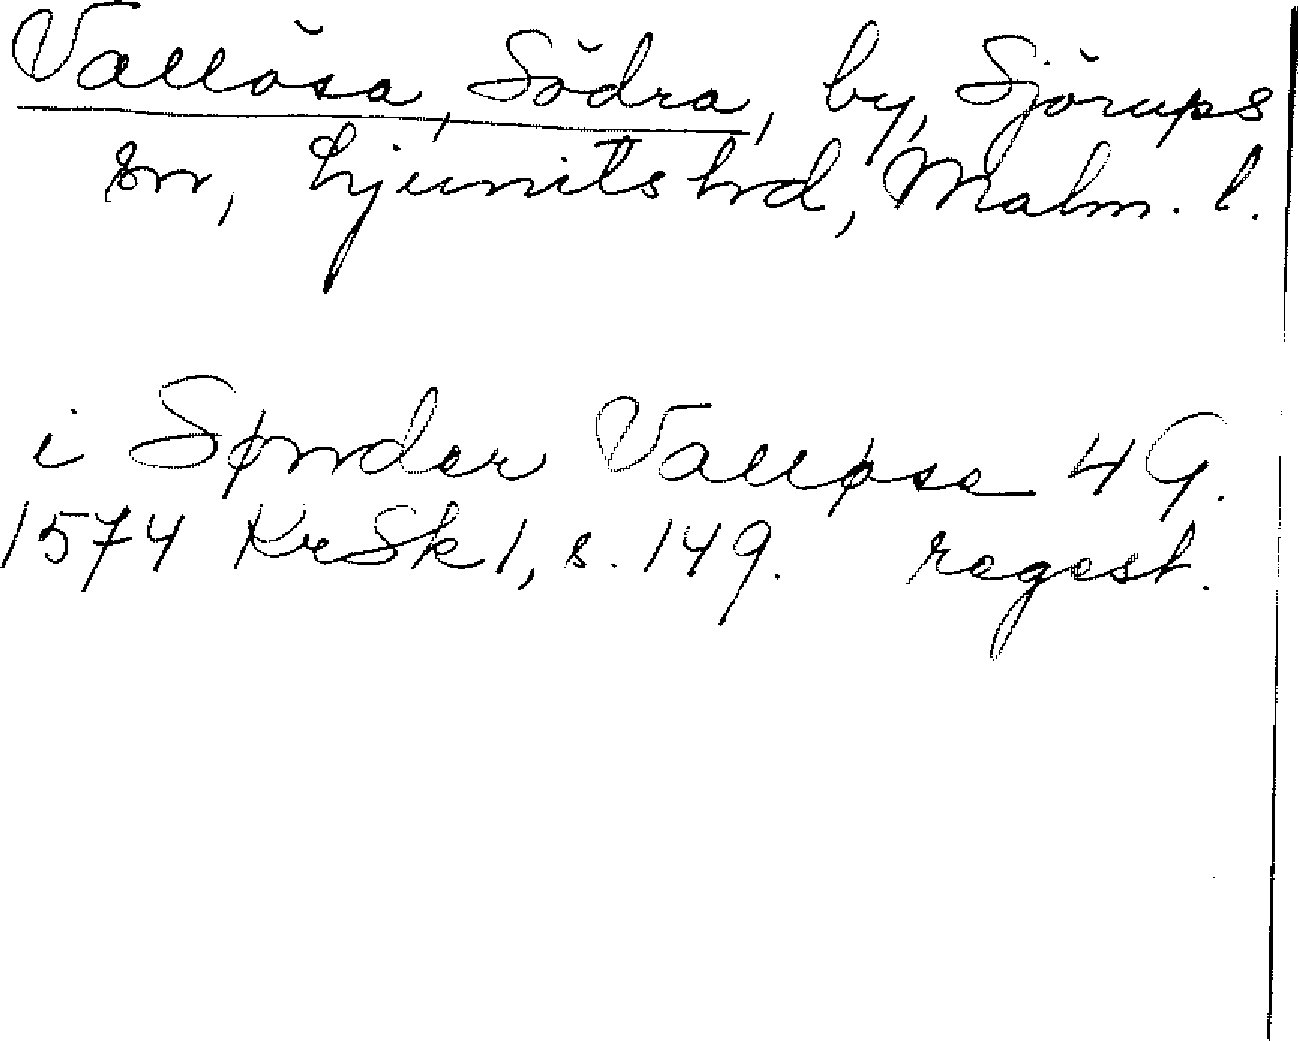 Vallösa, Södra, by, Sjörups
sn, Ljunits hrd, Malm. l.
i Sønder Valløse 4 G.
1574 KrSk 1, s. 149. regest.